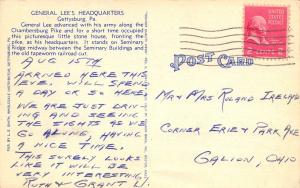 GENERAL LEE'S HEADQUARTERS
Gettysburg, Pa.
General Lee advanced with his army along the
Chambersburg Pike and for a short time occupied
this picturesque little stone house, fronting the
pike, as his headquarters. It stands on Seminary
Ridge midway between the Seminary Buildings and
the old tapeworm railroad cut.
AUG 15TH
ARRIVED HERE THIS
EVE. WILL SPEND
A DAY OR SO HERE.
WE ARE JUST DRIV-
ING AND SEEING
THE SIGHTS AS WE
GO ALONG, HAVING
A NICE TIME.
THIS SURELY LOOKS
LIKE IT WILL BE
VERY INTERESTING.
RUTH & GRANT U.
POST CARD
MR & MRS ROLAND IRELAN
CORNER ERIE & PARK AVE
GALION, OHIO